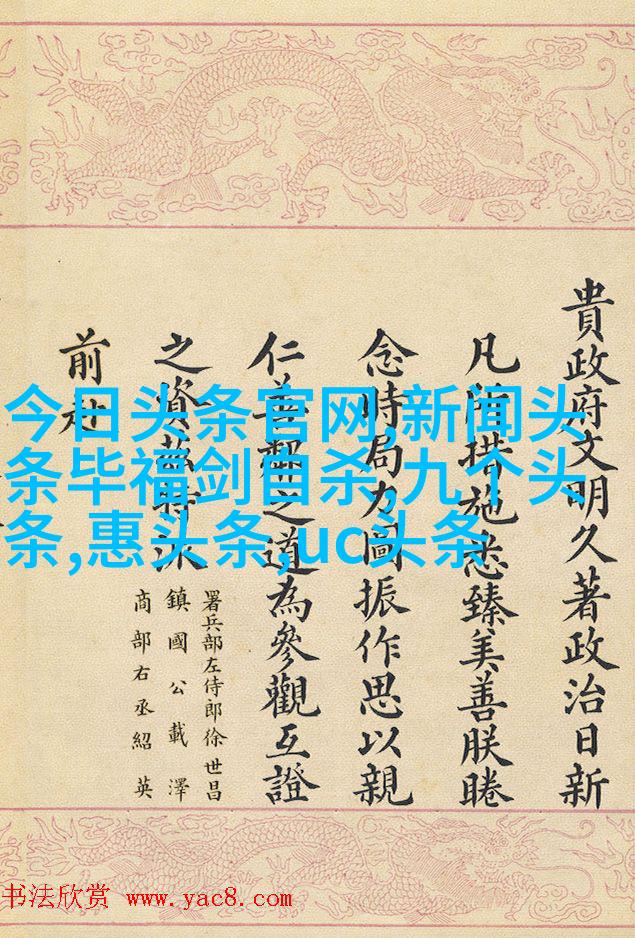 貴政府文明久著政治日新
凡所措施悉臻美善朕睠
念時局力圖振作思以親
仁善鄰之道為參觀互證
之資茲特派
署兵部左侍郎徐世昌
鎮國公載澤
商部右丞紹英
前赴
今日头条官网,新闻头
条毕福剑自杀,九个头
条,惠头条,uc头条
书法欣赏 www.yac8.com